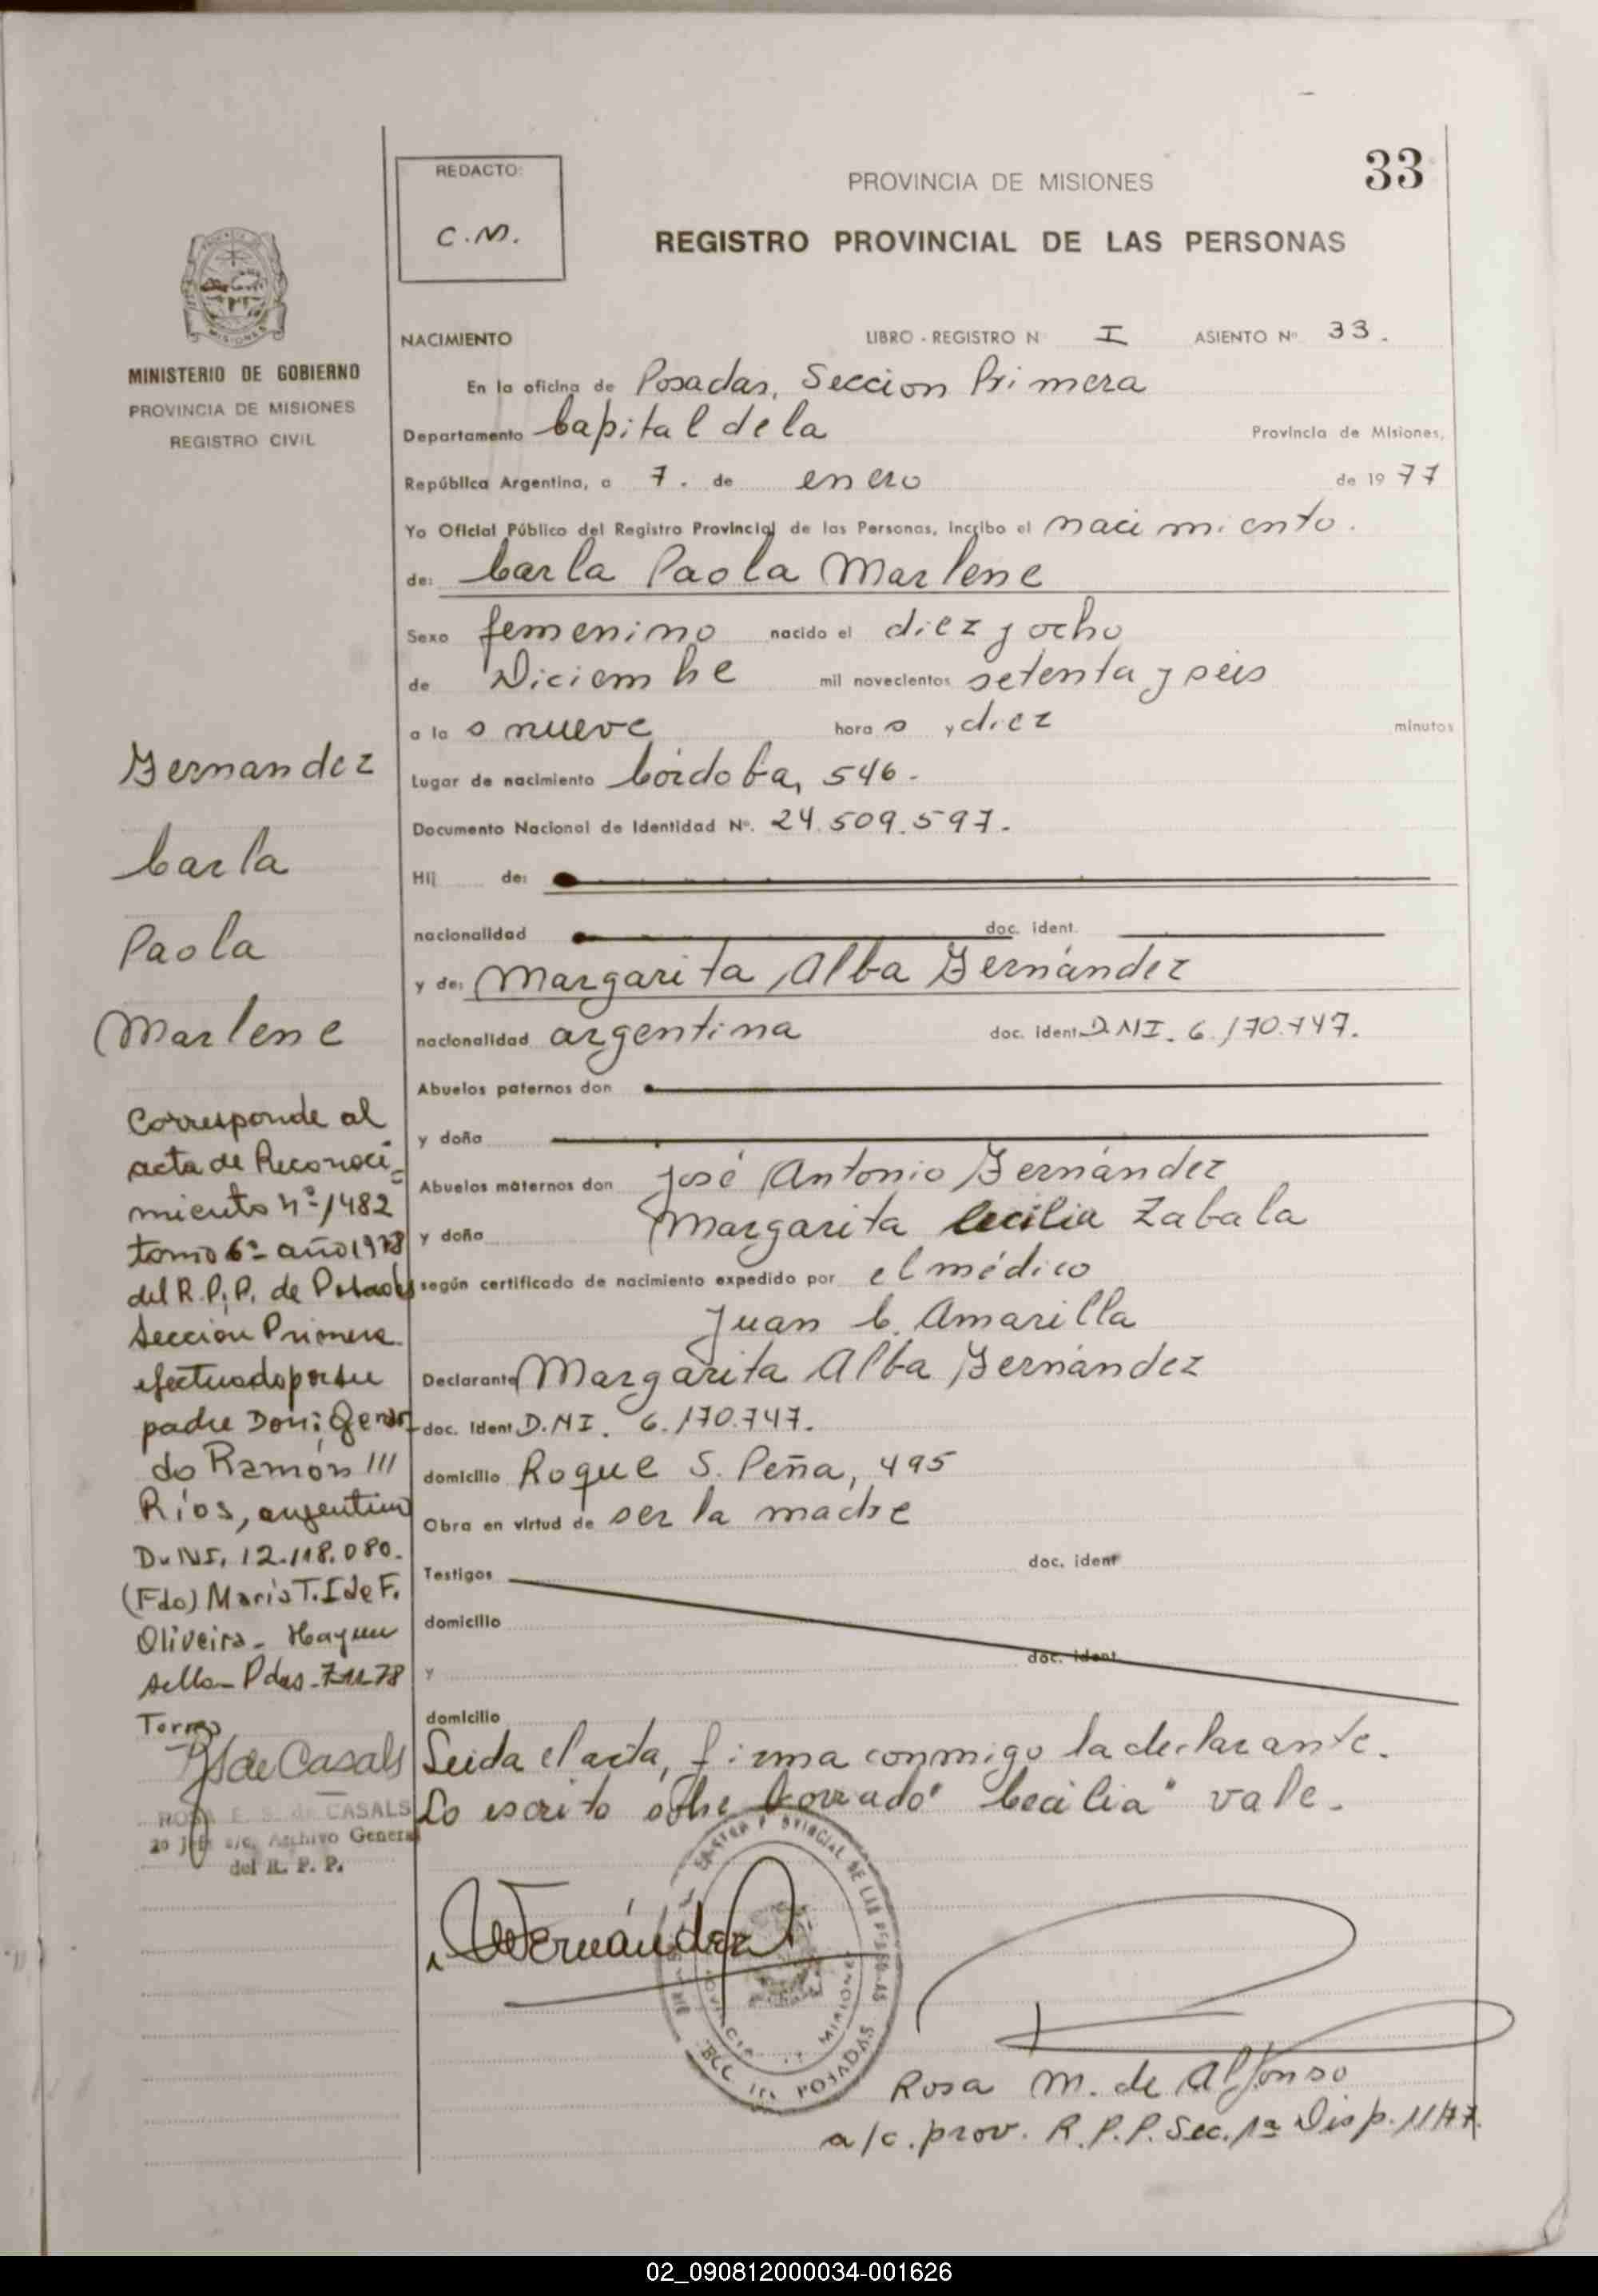 33
REDACTO:
C.M.
PROVINCIA DE MISIONES
REGISTRO PROVINCIAL DE LAS PERSONAS
MINISTERIO DE GOBIERNO
PROVINCIA DE MISIONES
REGISTRO CIVIL
NACIMIENTO LIBRO - REGISTRO N° I ASIENTO N° 33.
En la oficina de Posadas, Seccion Primera
Departamento Capital de la Provincia de Misiones,
República Argentina, a 7. de enero de 1977
Yo Oficial Público del Registro Provincial de las Personas, incribo el nacimiento.
de: Carla Paola Marlene
Sexo femenino nacido el diez y ocho
de Diciembre mil novecientos setenta y seis
a la s nueve hora s y diez minutos
Lugar de nacimiento Córdoba, 546-
Documento Nacional de Identidad N°. 24.509.597.
Hij de:
nacionalidad doc. ident.
y de: Margarita Alba Fernández
nacionalidad argentina doc. ident. D.NI. 6.170.747.
Abuelos paternos don
y doña
Abuelos maternos don José Antonio Fernández
y doña Margarita Cecilia Zabala
según certificado de nacimiento expedido por el médico
Juan C. Amarilla
Declarante Margarita Alba Fernández
doc. Ident D.NI. 6.170.747.
domicilio Roque S. Peña, 495
Obra en virtud de ser la madre
Testigos doc. ident
domicilio
y doc. ident
domicilio
Leida el acta, firma conmigo la declarante.
Lo escrito sobre borrado "Cecilia" vale.
Fernandez
Carla
Paola
Marlene
Corresponde al
acta de Reconoci=
miento n° 1482
tomo 6°- año 1978
del R.P.P. de Posadas
Sección Primera
efectuado por su
padre Don: Gerar-
do Ramón III
Ríos, argentino
D.NI. 12.118.080.
(Fdo) María T. I de F.
Oliveira- Hay un
sello- Pdas-7-11-78
Torres
de Casals
ROSA E. S. de CASALS
2o jefe a/c. Archivo General
del R. P. P.
Fernández
PROVINCIAL DE LAS PERSONAS
MISIONES
POSADAS
Rosa M. de Alfonso
a/c. prov. R.P.P. Sec. 1ª Disp. 11/77.
02_090812000034-001626